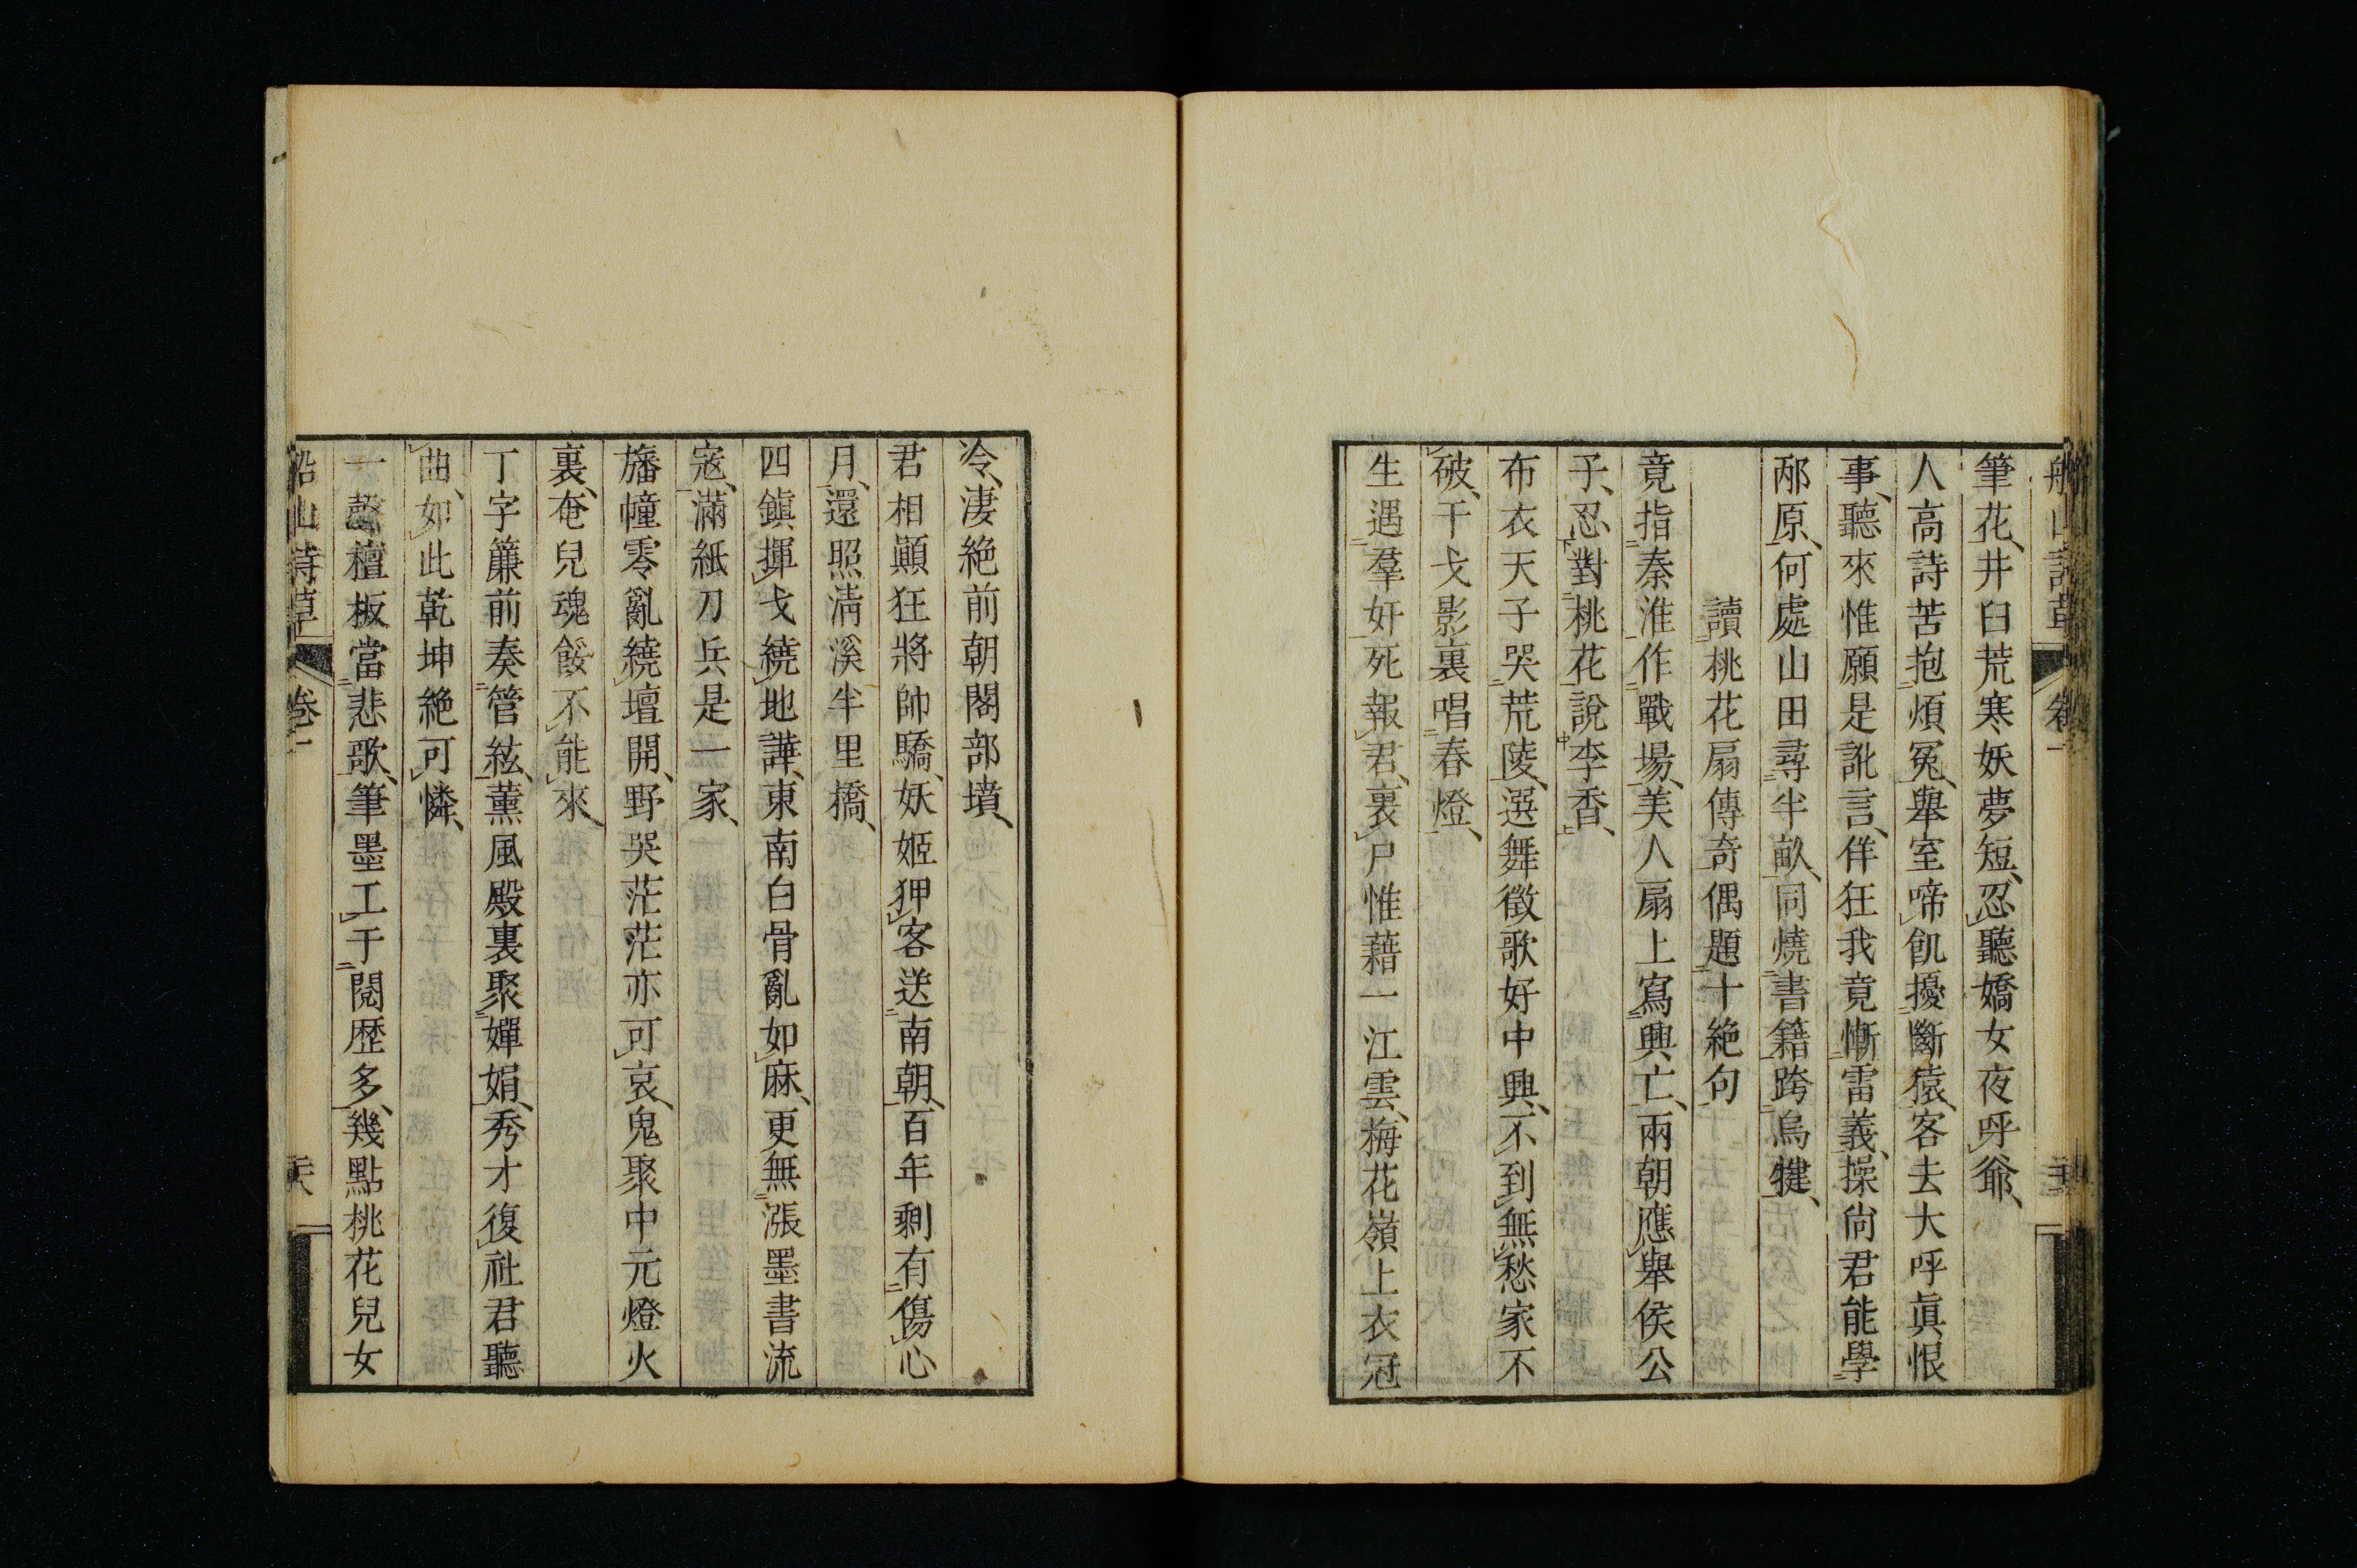 船山詩草 卷一
筆花、井臼荒寒妖夢短、忍聽嬌女夜呼爺、
人高詩苦抱煩冤、舉室啼飢擾斷猿、客去大呼眞恨
事、聽來惟願是訛言、佯狂我竟慚雷義、操尙君能學
邴原、何處山田尋半畝、同燒書籍跨烏犍、
讀桃花扇傳奇偶題十絶句
竟指秦淮作戰場、美人扇上寫興亡、兩朝應舉侯公
子、忍對桃花說李香、
布衣天子哭荒陵、選舞徵歌好中興、不到無愁家不
破、干戈影裏唱春燈、
生遇羣奸死報君、裏尸惟藉一江雲、梅花嶺上衣冠
冷、淒絶前朝閣部墳、
君相顚狂將帥驕、妖姬狎客送南朝、百年剩有傷心
月、還照淸溪半里橋、
四鎭揮戈繞地譁、東南白骨亂如麻、更無漲墨書流
寇、滿紙刀兵是一家、
旛幢零亂繞壇開、野哭茫茫亦可哀、鬼聚中元燈火
裏、奄兒魂餒不能來、
丁字簾前奏管絃、薰風殿裏聚嬋娟、秀才復社君聽
曲、如此乾坤絶可憐、
一聲檀板當悲歌、筆墨工于閱歷多、幾點桃花兒女
船山詩草 卷一 二十六